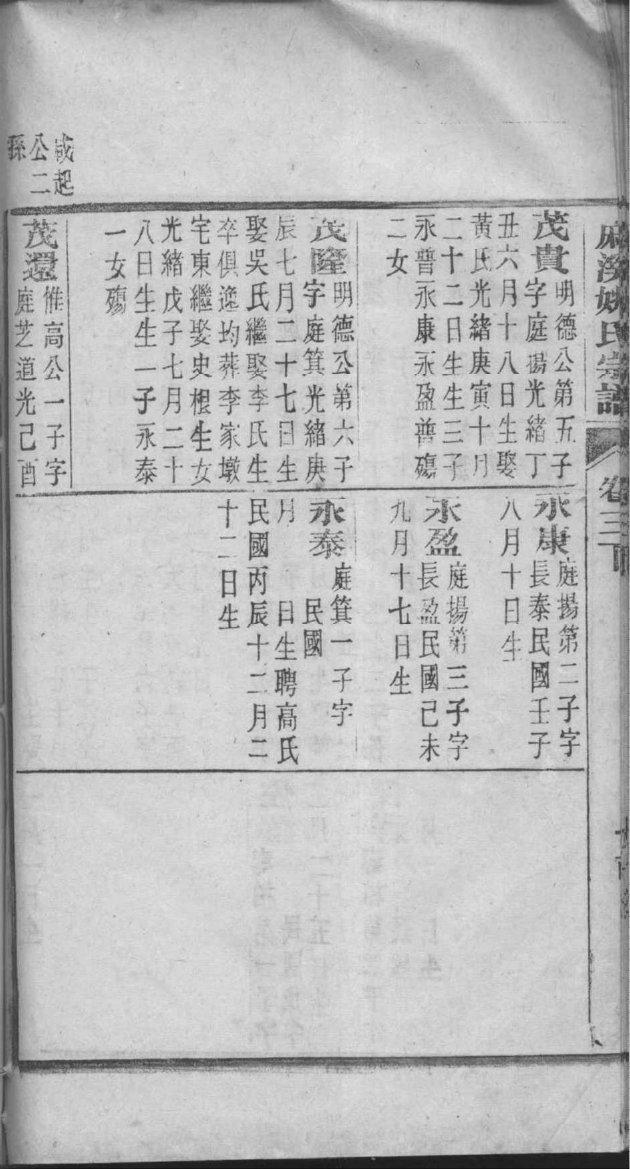 麻溪姚氏宗譜
卷三
茂貴
明德公第五子
字庭揚光緒丁
丑六月十八日生娶
黃氏光緒庚寅十月
二十二日生生三子
永普永康永盈普殤
二女
茂隆
明德公第六子
字庭箕光緒庚
辰七月二十七日生
娶吳氏繼娶李氏生
卒俱逸均葬李家墩
宅東繼娶史根生女
光緒戊子七月二十
八日生生一子永泰
一女殤
咸起
公二
孫
茂還
惟高公一子字
庭芝道光己酉
永康
庭揚第二子字
長泰民國壬子
八月十日生
永盈
庭揚第三子字
長盈民國己未
九月十七日生
永泰
庭箕一子字
民國
月 日生聘高氏
民國丙辰十二月二
十二日生